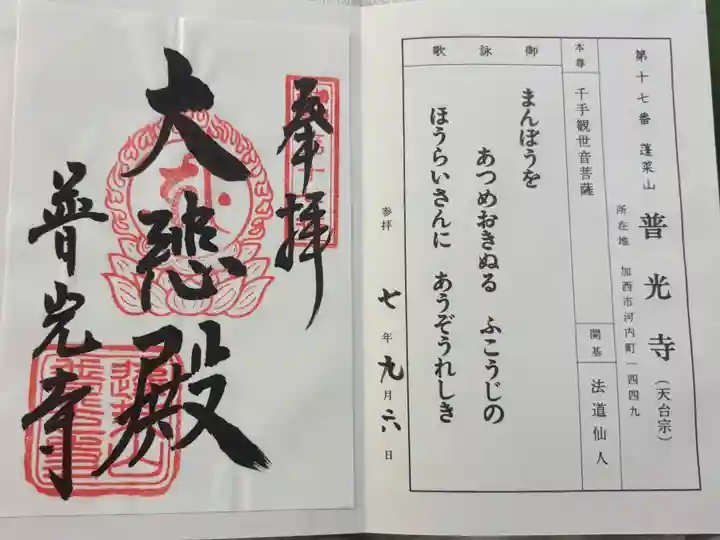 第十七番 蓬莱山 普光寺（天台宗）
所在地 加西市河内町一四四九
本尊 千手観世音菩薩
開基 法道仙人
御詠歌
まんぽうを
あつめおきぬる ふこうじの
ほうらいさんに あうぞうれしき
参拝 七年九月六日
奉拝
大悲殿
普光寺